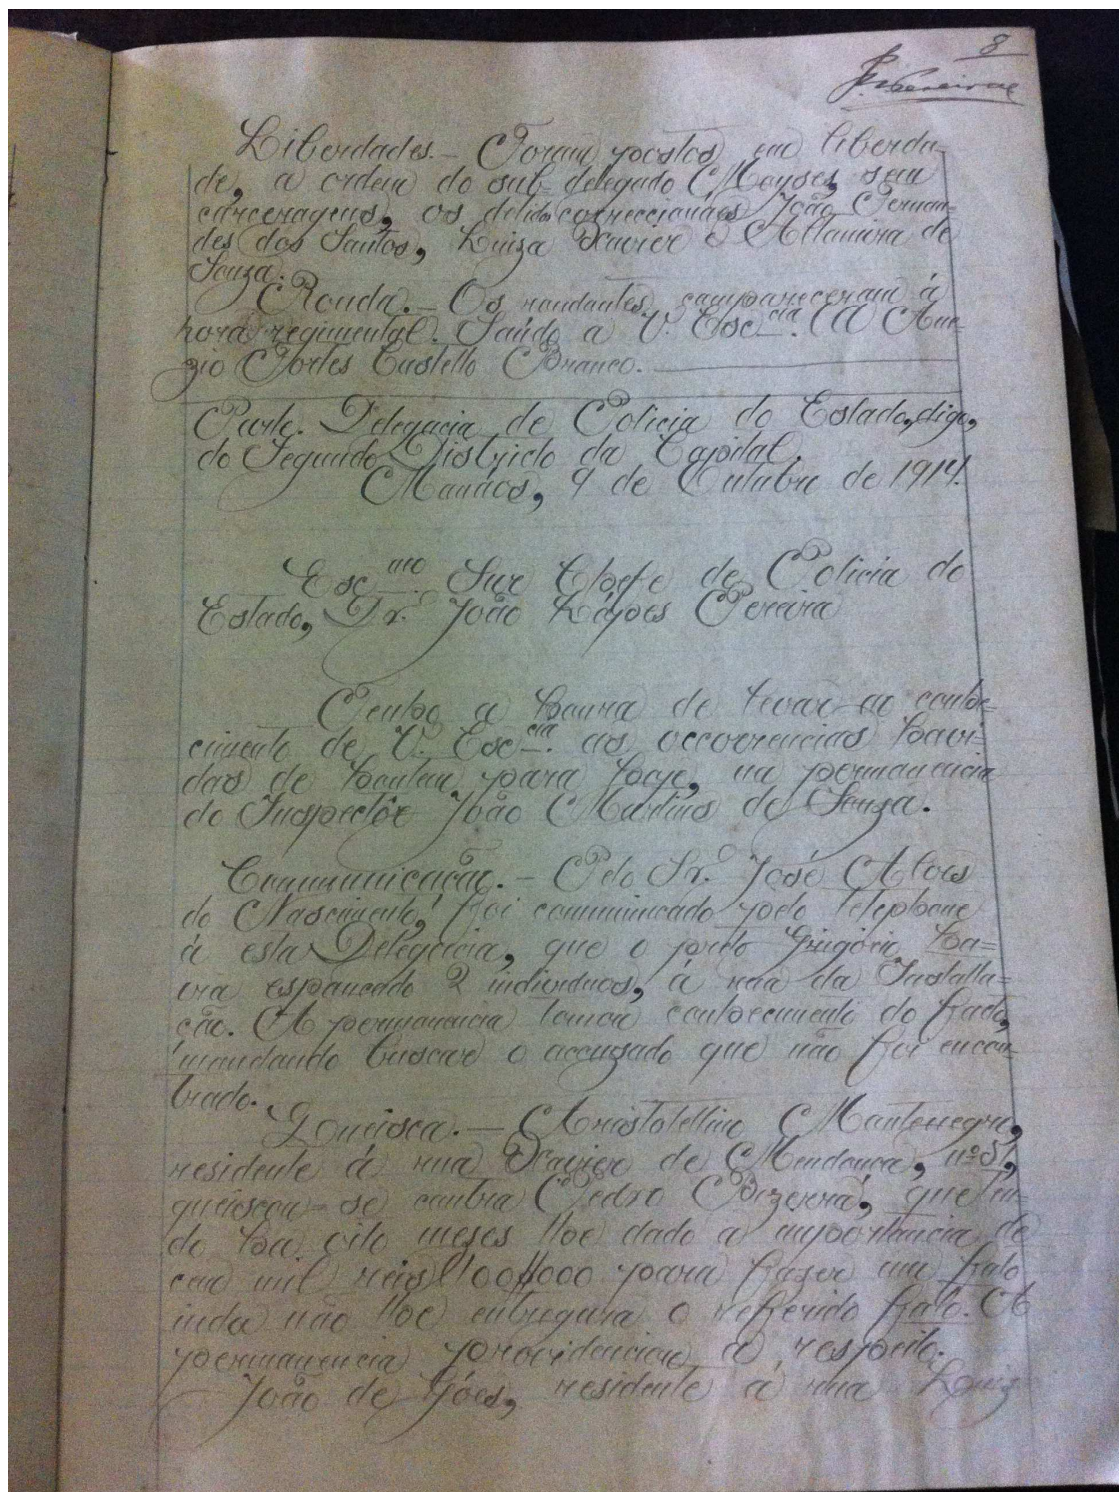 8
Liberdades. - Foram postos em liberda-
de, a ordem do sub-delegado Moyses, sem
carceragens, os detidos correccionaes João Fernan-
des dos Santos, Luiza Xavier e Altamira de
Souza.
Ronda. - Os rondantes compareceram á
hora regimental. Saúdo a V. Exc.cia. (A)
zio Fortes Castello Branco.
Parte. Delegacia de Policia do Estado, digo,
do Segundo Districto da Capital.
Manáos, 9 de Outubro de 1914.
Exc.mo Snr Chefe de Policia do
Estado, Dr. João Lopes Pereira
Tenho a honra de levar ao conhe-
cimento de V. Exc.cia. as occorrencias havi-
das de hontem para hoje, na permanencia
do Inspector João Martins de Souza.
Communicação. - Pelo Sr. José Alves
do Nascimento, foi communicado pelo telephone
á esta Delegacia, que o preto Grigorio ha-
via espancado 2 individuos, á rua da Installa-
ção. A permanencia tomou conhecimento do facto,
mandando buscar o accuzado que não foi encon-
trado.
Queixa. - Aristotellina Mantenegro,
residente á rua Xavier de Mendonça, nº 51,
queixou-se contra Pedro Bizerra, que ten-
do ha oito meses lhe dado a importancia de
cem mil reis 100$000 para fazer um fato
inda não lhe entregara o referido fato. A
permanencia providenciou a respeito.
João de Góes, residente á rua Luiz